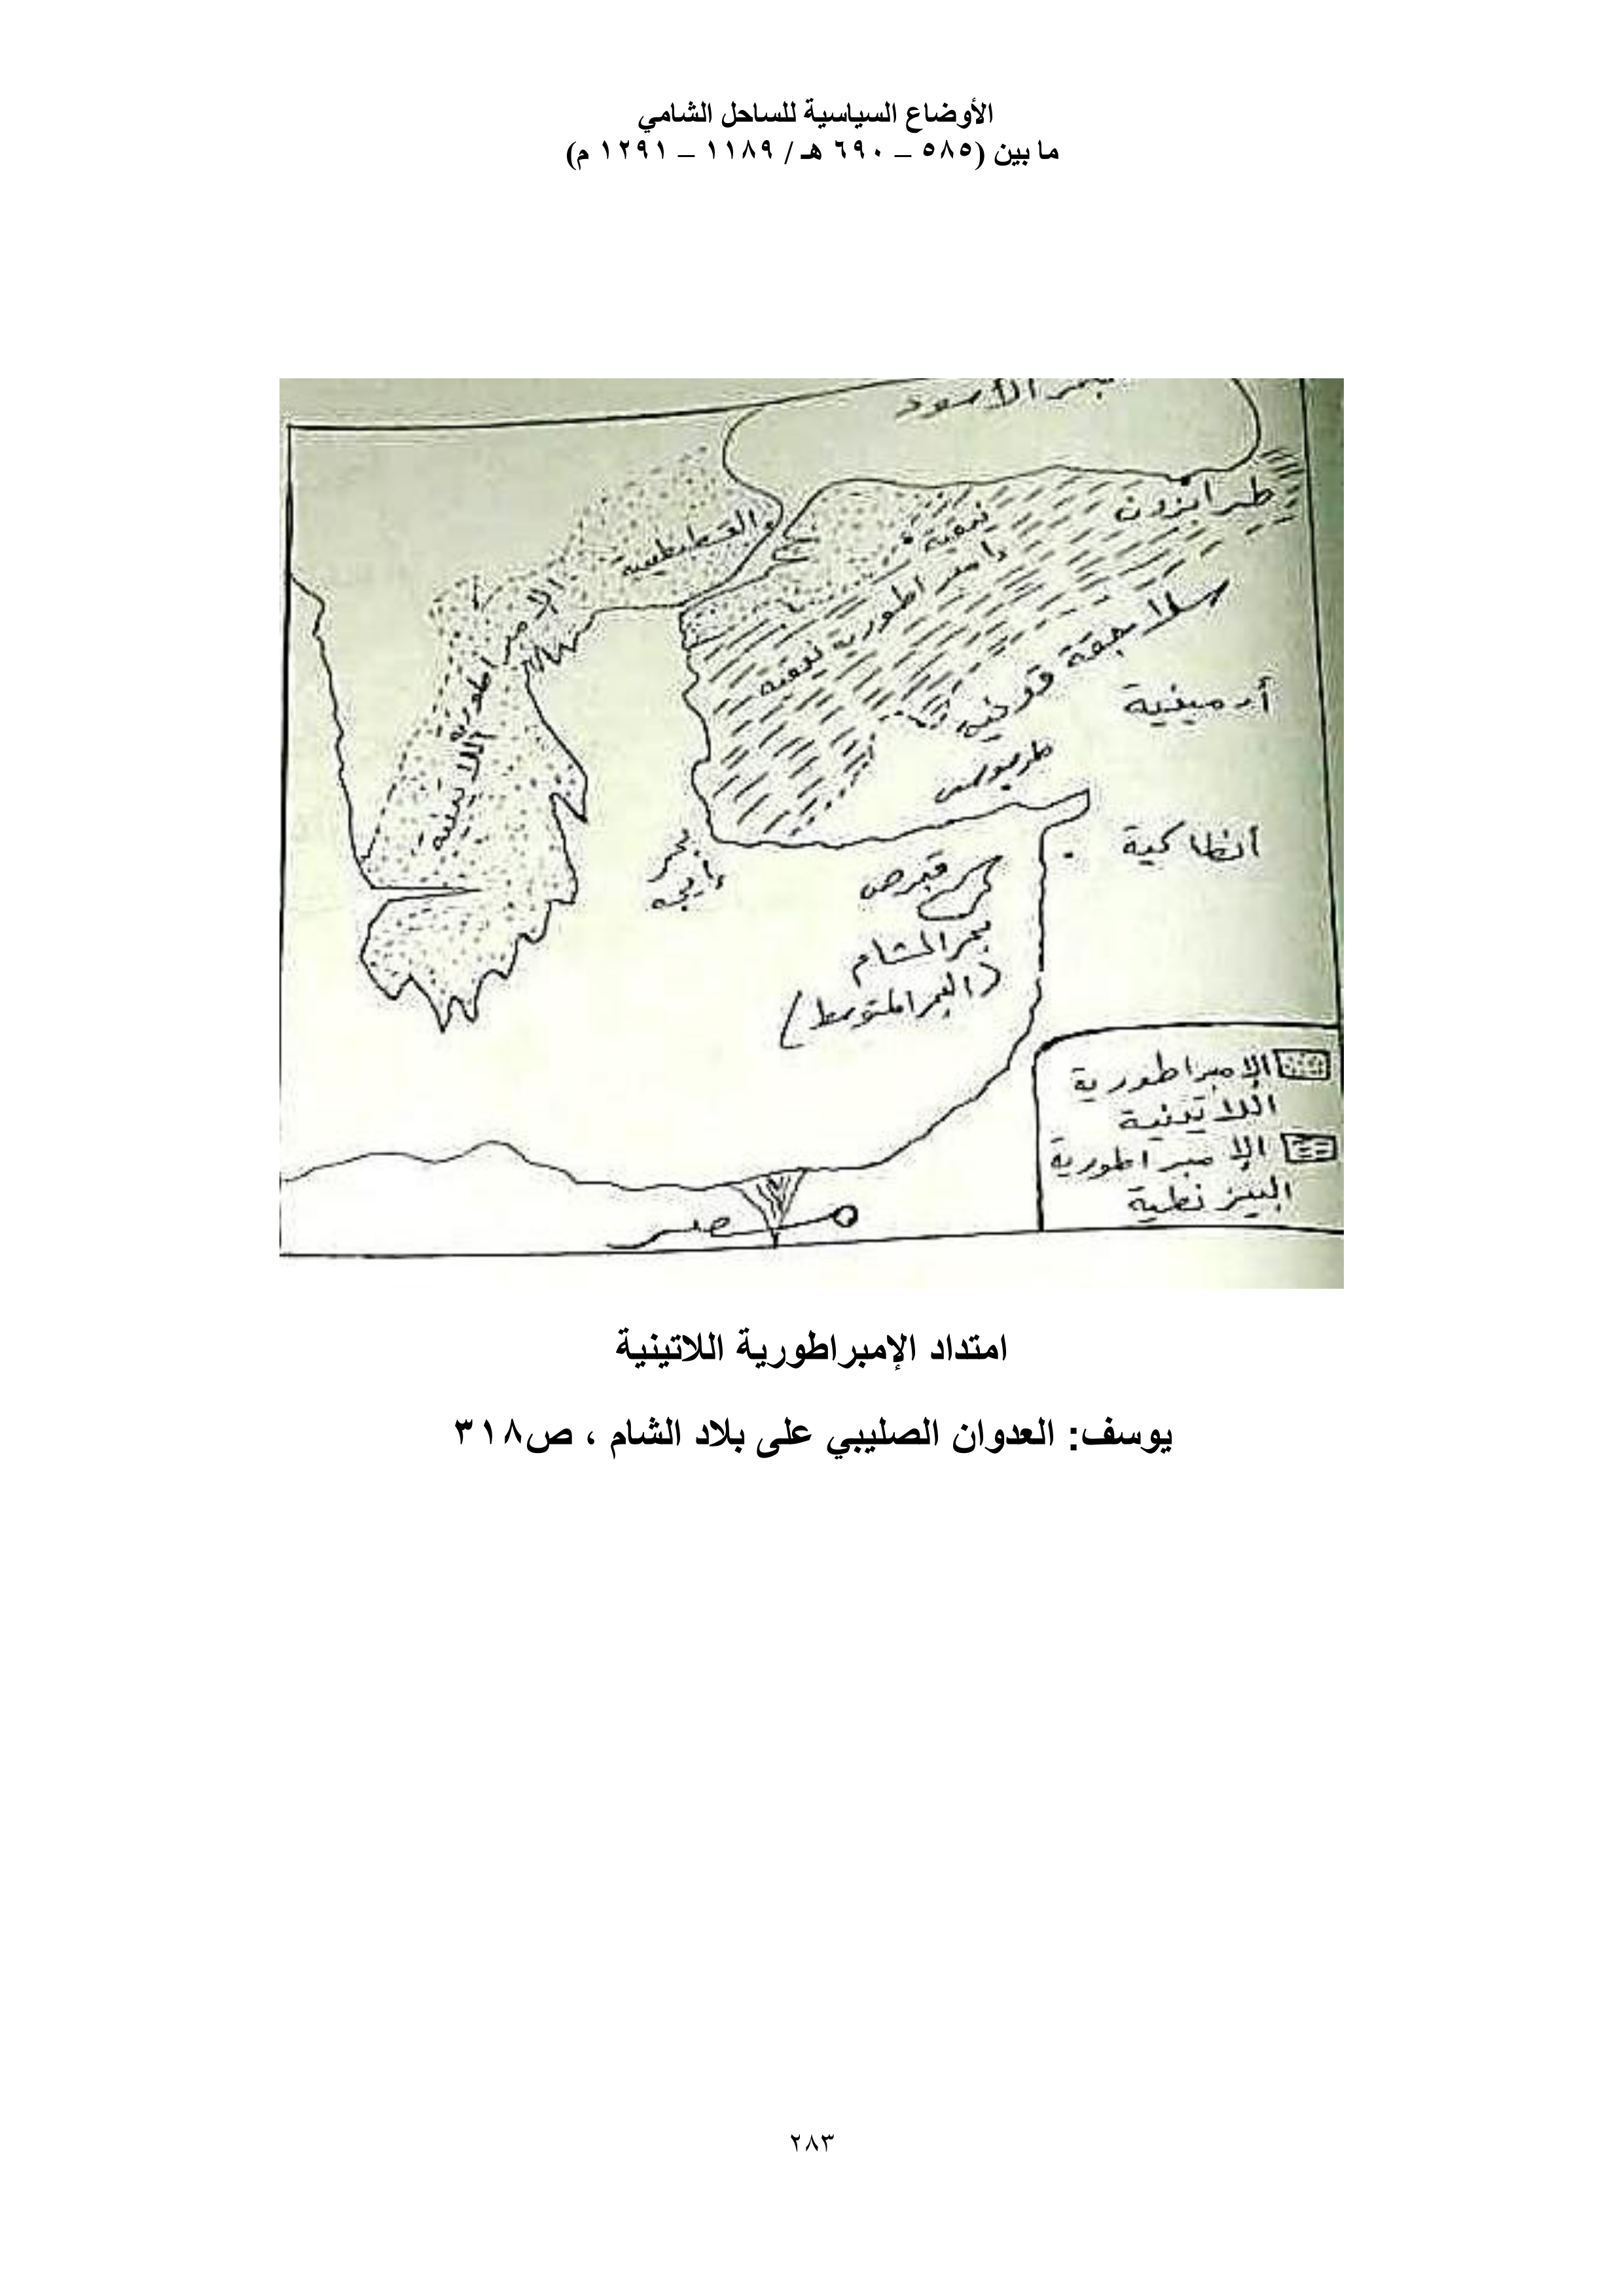 الأوضاع السياسية للساحل الشامي
ما بين (٥٨٥ – ٦٩٠ هـ / ١١٨٩ – ١٢٩١ م)
البحر الأسود
طرابزون
والقسطنطينية
نيقية
وامبراطورية نيقية
الإمبراطورية
اللاتينية
سلاجقة قونية
أرمينية
طرسوس
أنطاكية
بحر
إيجه
قبرص
بحر الشام
(البحر المتوسط)
مصر
الإمبراطورية
اللاتينية
الإمبراطورية
البيزنطية
امتداد الإمبراطورية اللاتينية
يوسف: العدوان الصليبي على بلاد الشام ، ص٣١٨
٢٨٣